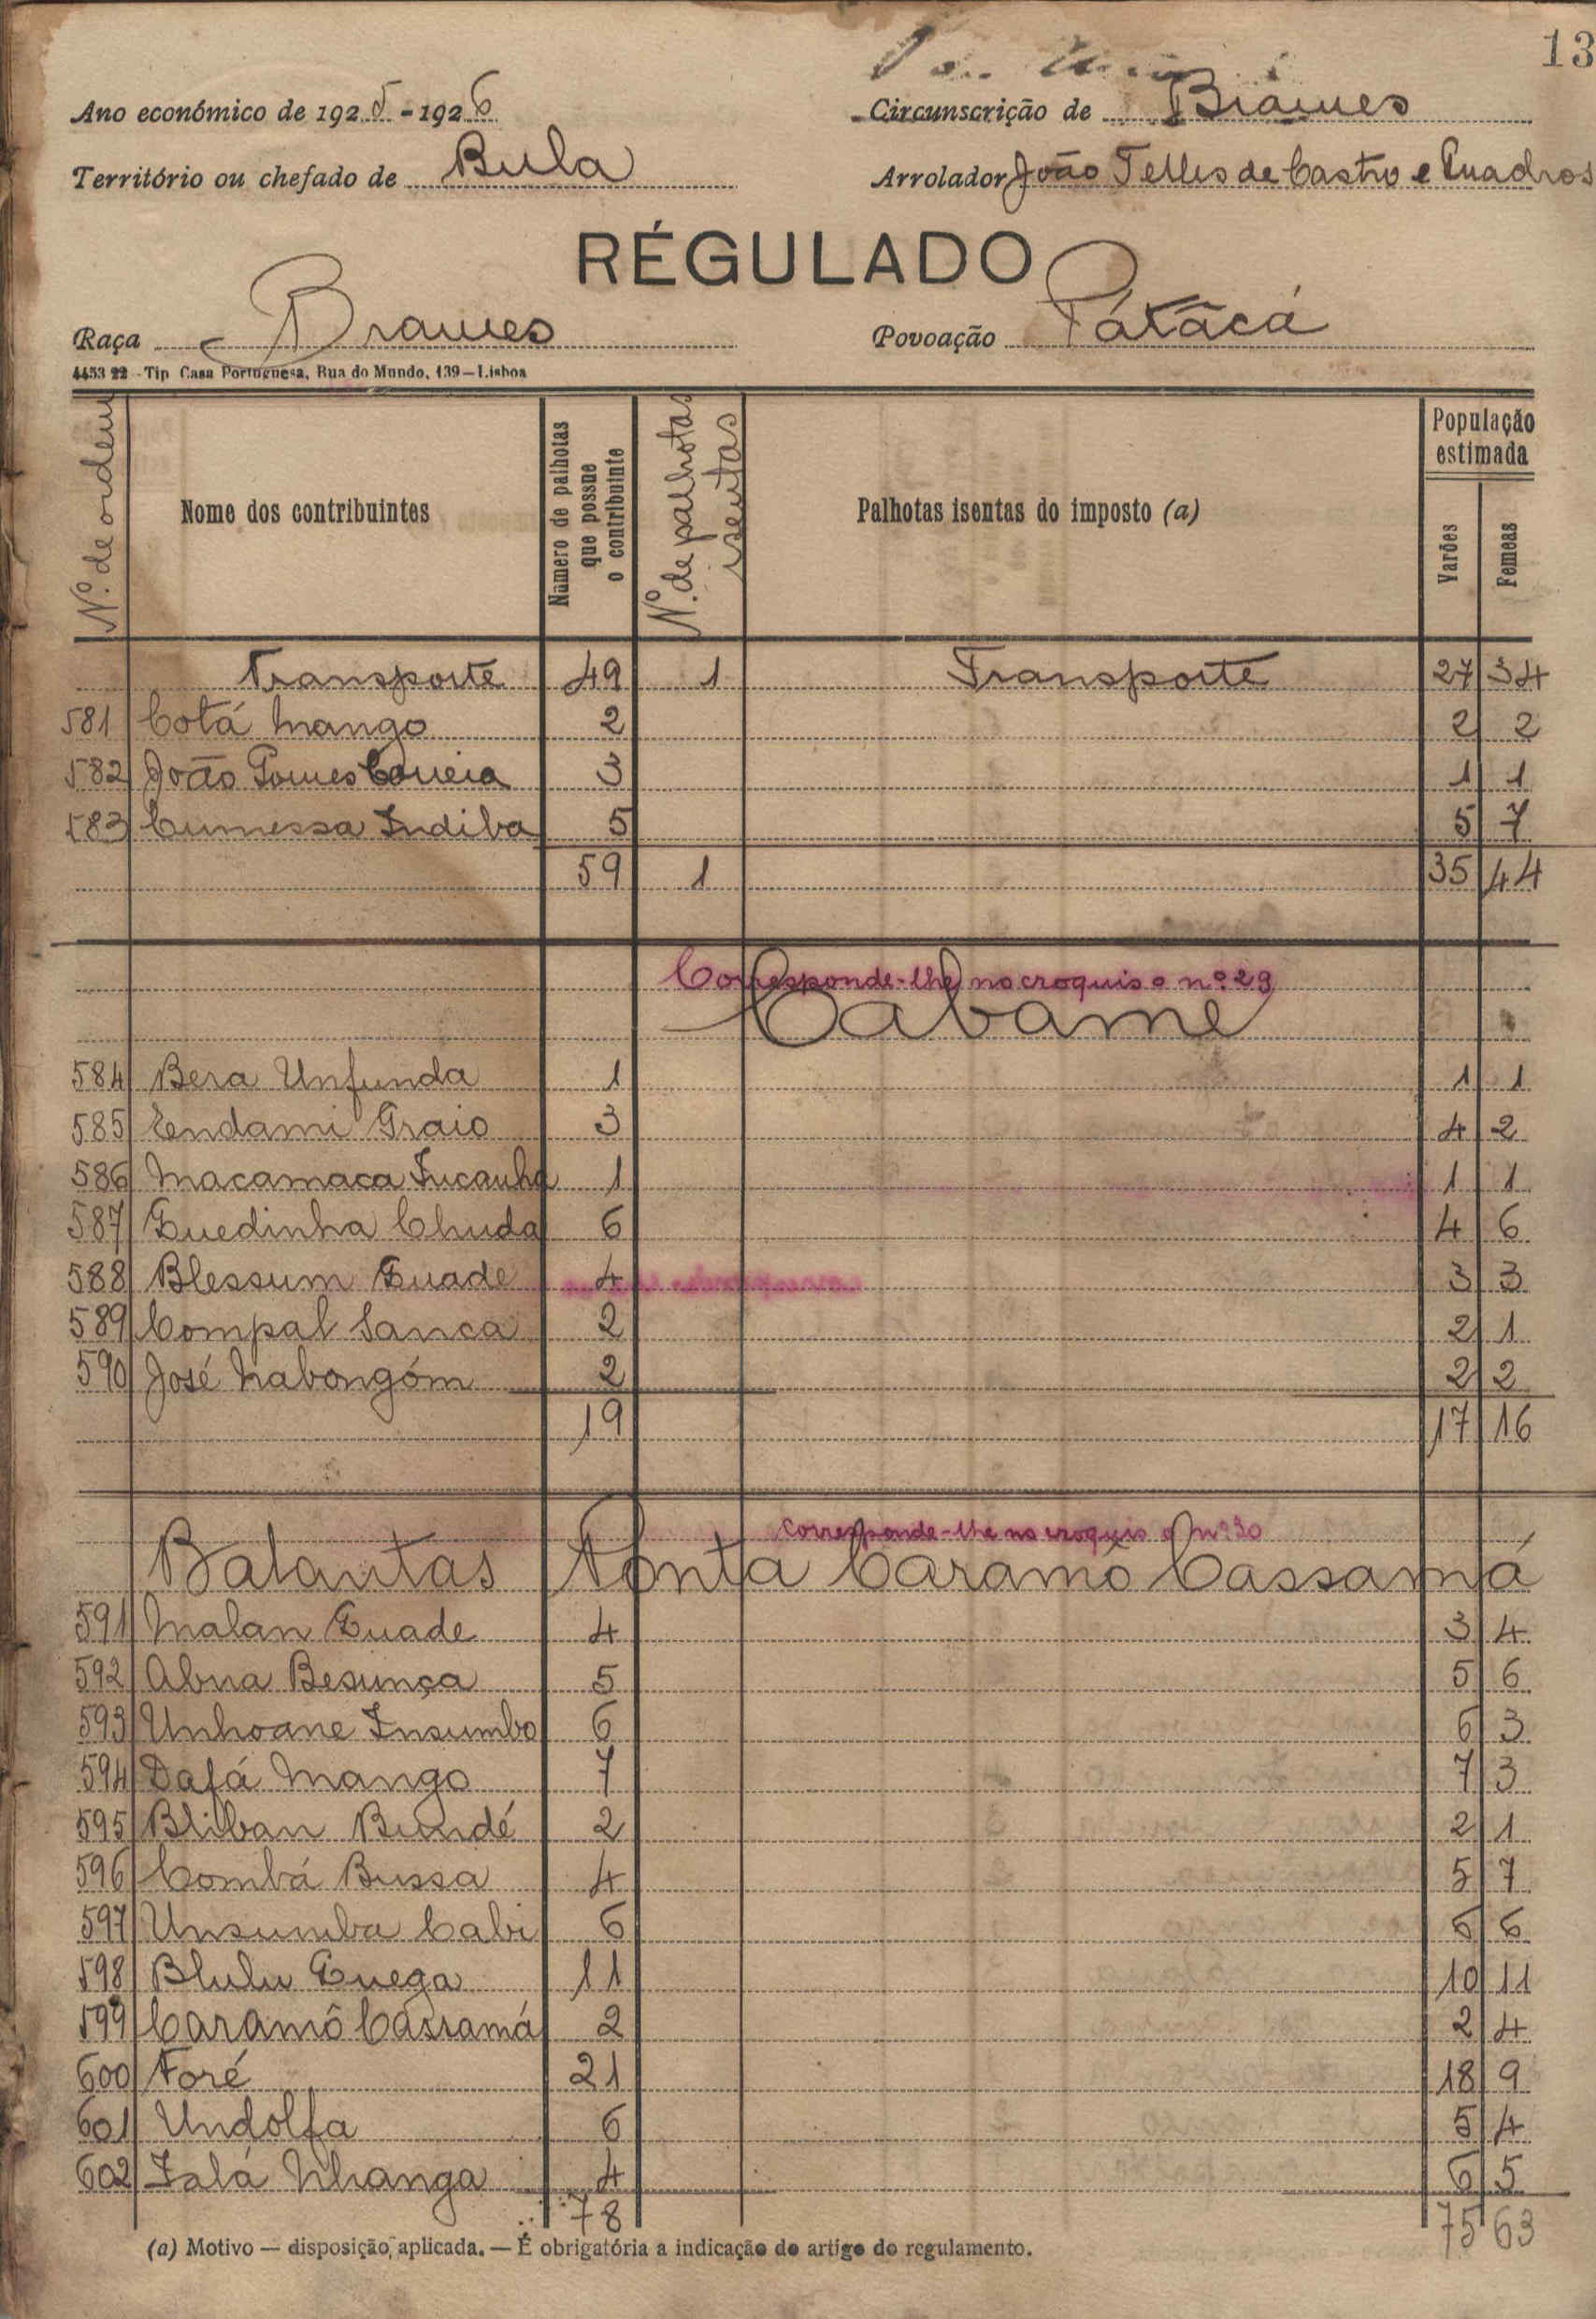 13
Ano económico de 1925-1926
Circunscrição de Brames
Território ou chefado de Bula
Arrolador João Telles de Castro e Quadros
RÉGULADO
Raça Brames
Povoação Pátácá
4453 22 - Tip Casa Portuguesa, Rua do Mundo, 139—Lisboa
N.º de ordem
Nome dos contribuintes
Número de palhotas que possue o contribuinte
N.º de palhotas isentas
Palhotas isentas do imposto (a)
População estimada
Varões
Femeas
Transporte 49 1 Transporte 27 34
581 Cotá Mango 2 2 2
582 João Gomes Correia 3 1 1
583 Cumessa Indiba 5 5 7
59 1 35 44
Corresponde-lhe no croquis o nº 29
Cabame
584 Bera Unfunda 1 1 1
585 Endami Graio 3 4 2
586 Macamaca Iucanha 1 1 1
587 Guedinha Chuda 6 4 6
588 Blessum Guade 4 3 3
589 Compal Sanca 2 2 1
590 José Nabongóm 2 2 2
19 17 16
Corresponde-lhe no croquis o nº 30
Balantas Ponta Caramô Cassamá
591 Malan Guade 4 3 4
592 Abna Besunça 5 5 6
593 Unhoane Insumbo 6 6 3
594 Dafá Mango 7 7 3
595 Bliban Bundé 2 2 1
596 Combá Bussa 4 5 7
597 Unsumba Cabi 6 6 6
598 Blulu Guega 11 10 11
599 Caramô Cassamá 2 2 4
600 Foré 21 18 9
601 Undolfa 6 5 4
602 Ialá Nhanga 4 6 5
78 75 63
(a) Motivo — disposição aplicada. — É obrigatória a indicação do artigo do regulamento.